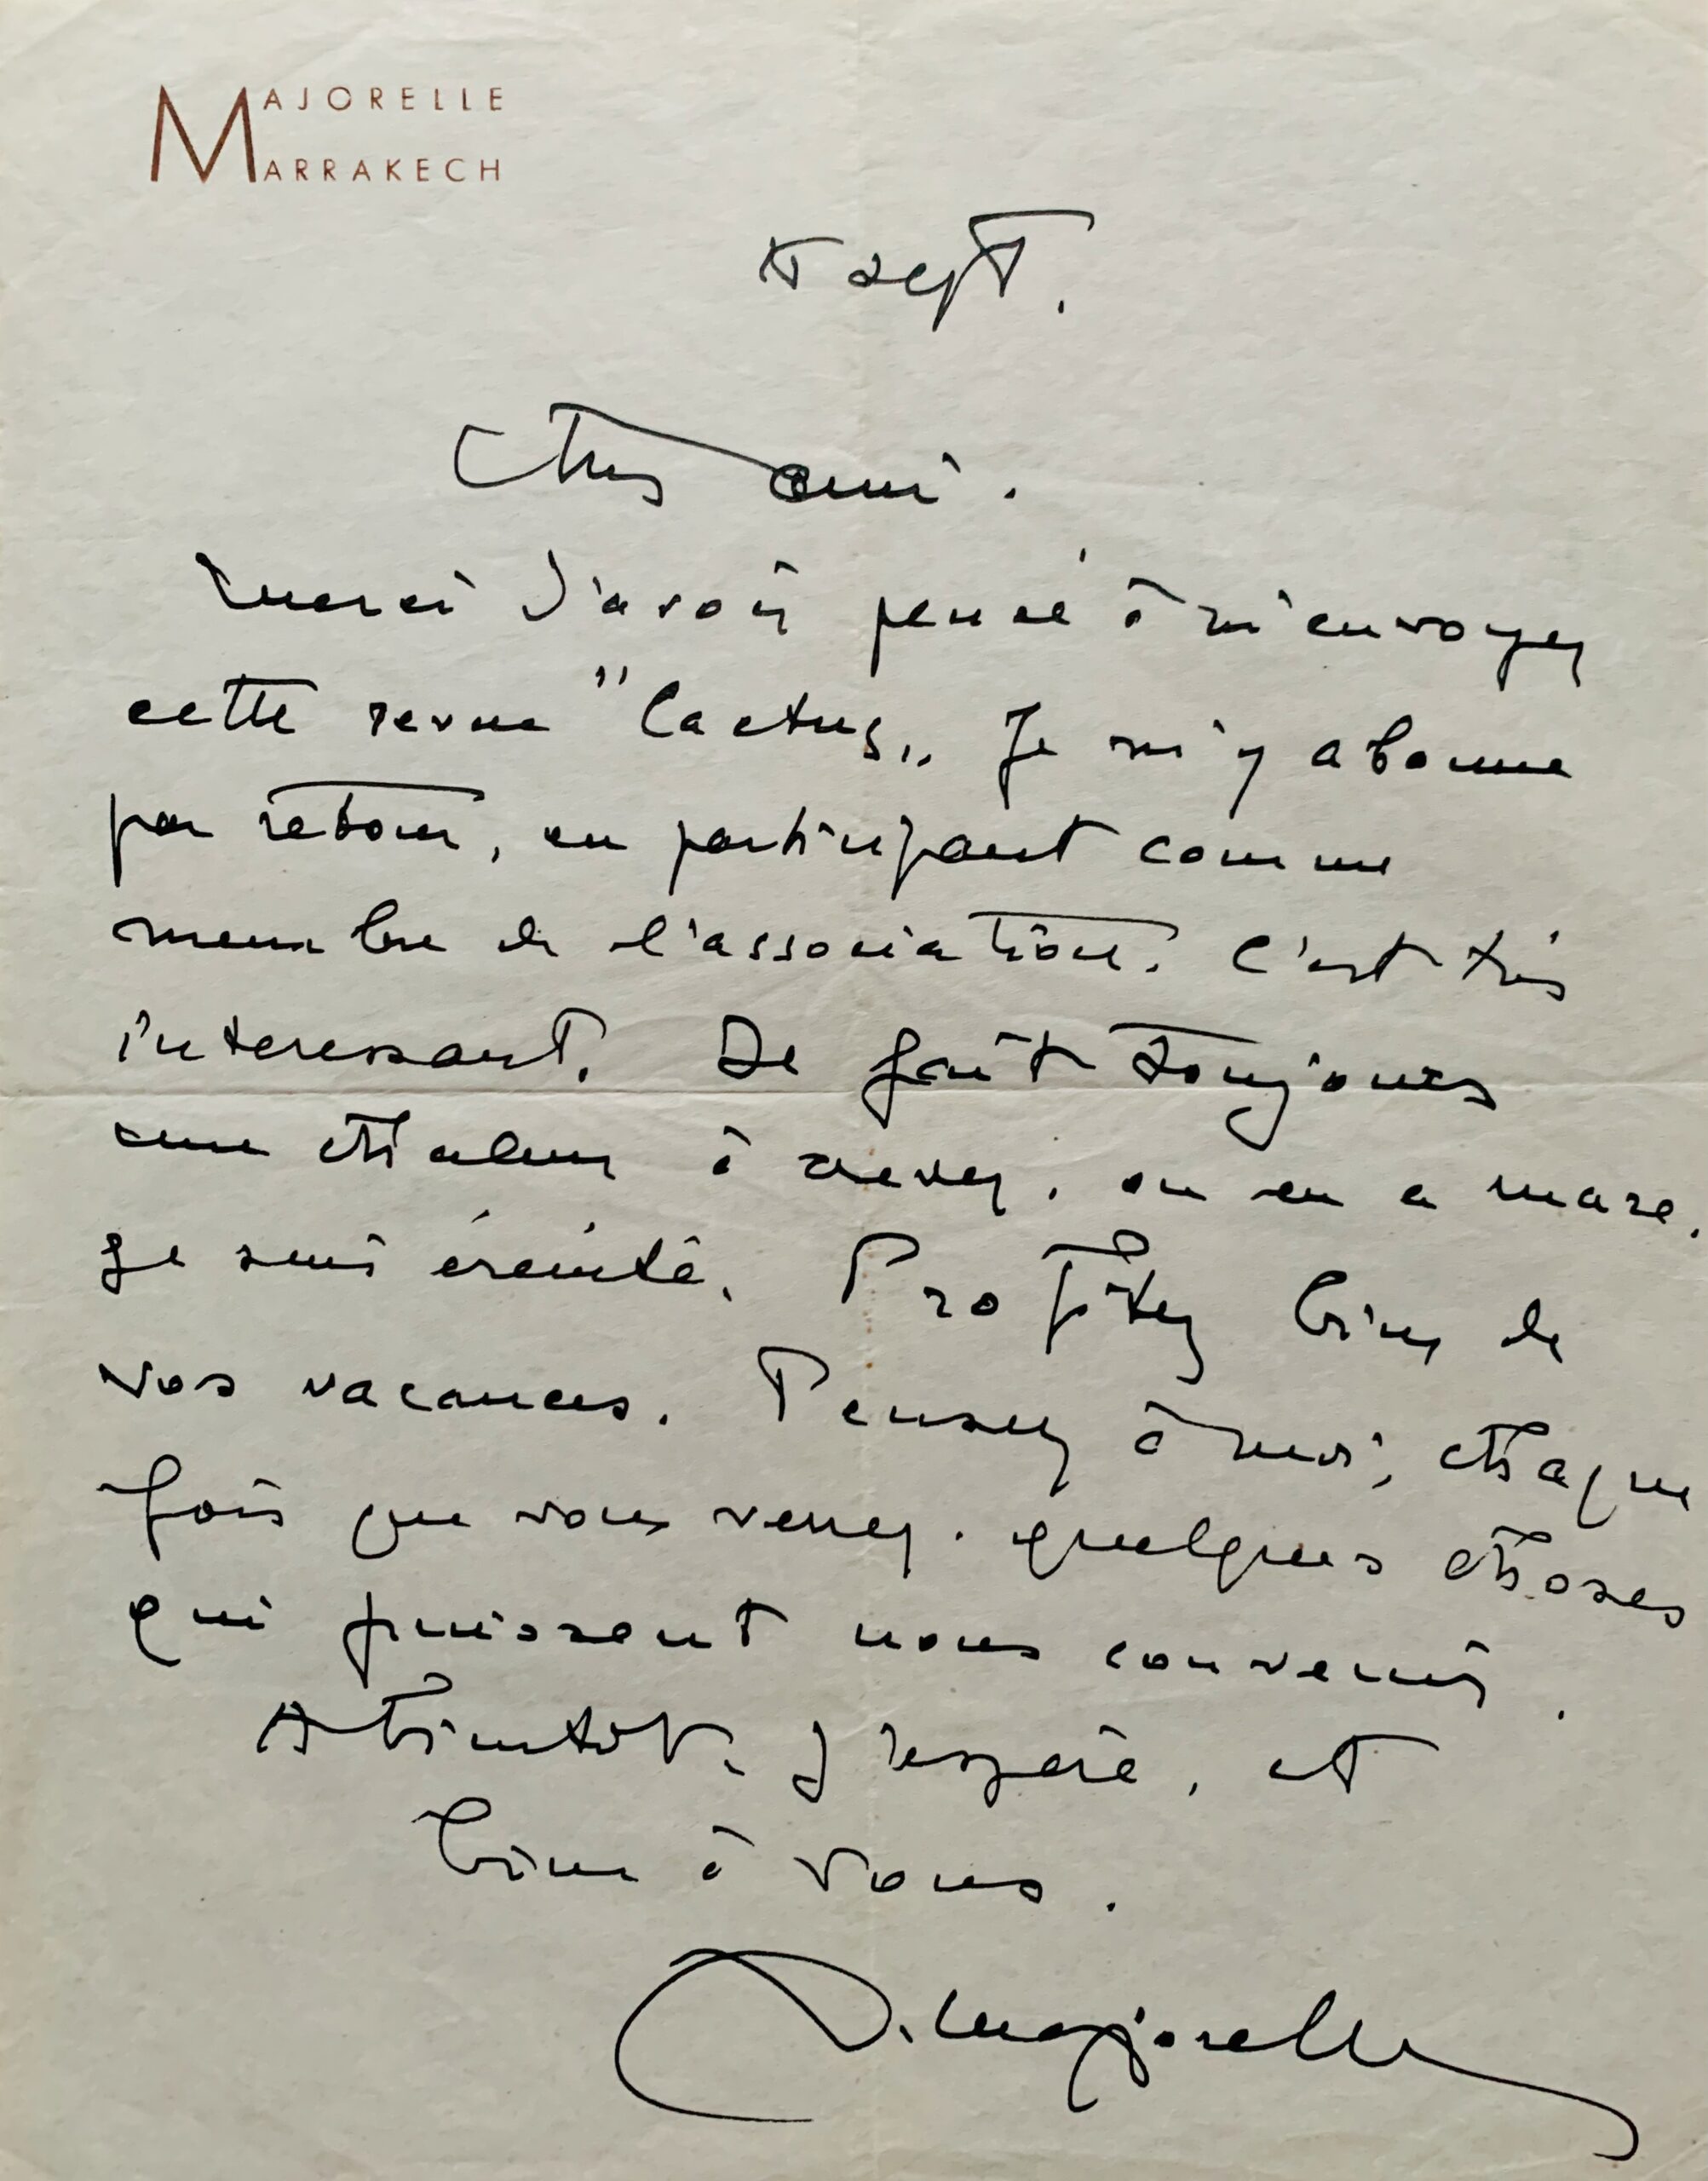 MAJORELLE
MARRAKECH
sept.
Cher ami.
Merci d'avoir pensé à m'envoyer
cette revue "Cactus„ Je m'y abonne
par retour, en participant comme
membre de l'association. C'est très
interessant. Il fait toujours
une chaleur à crever. on en a mare.
Je suis éreinté. Profitez bien de
vos vacances. Pensez à moi, chaque
fois que vous verrez. quelques choses
qui puissent nous convenir.
A bientôt. J'espère, et
bien à vous.
J. Majorelle